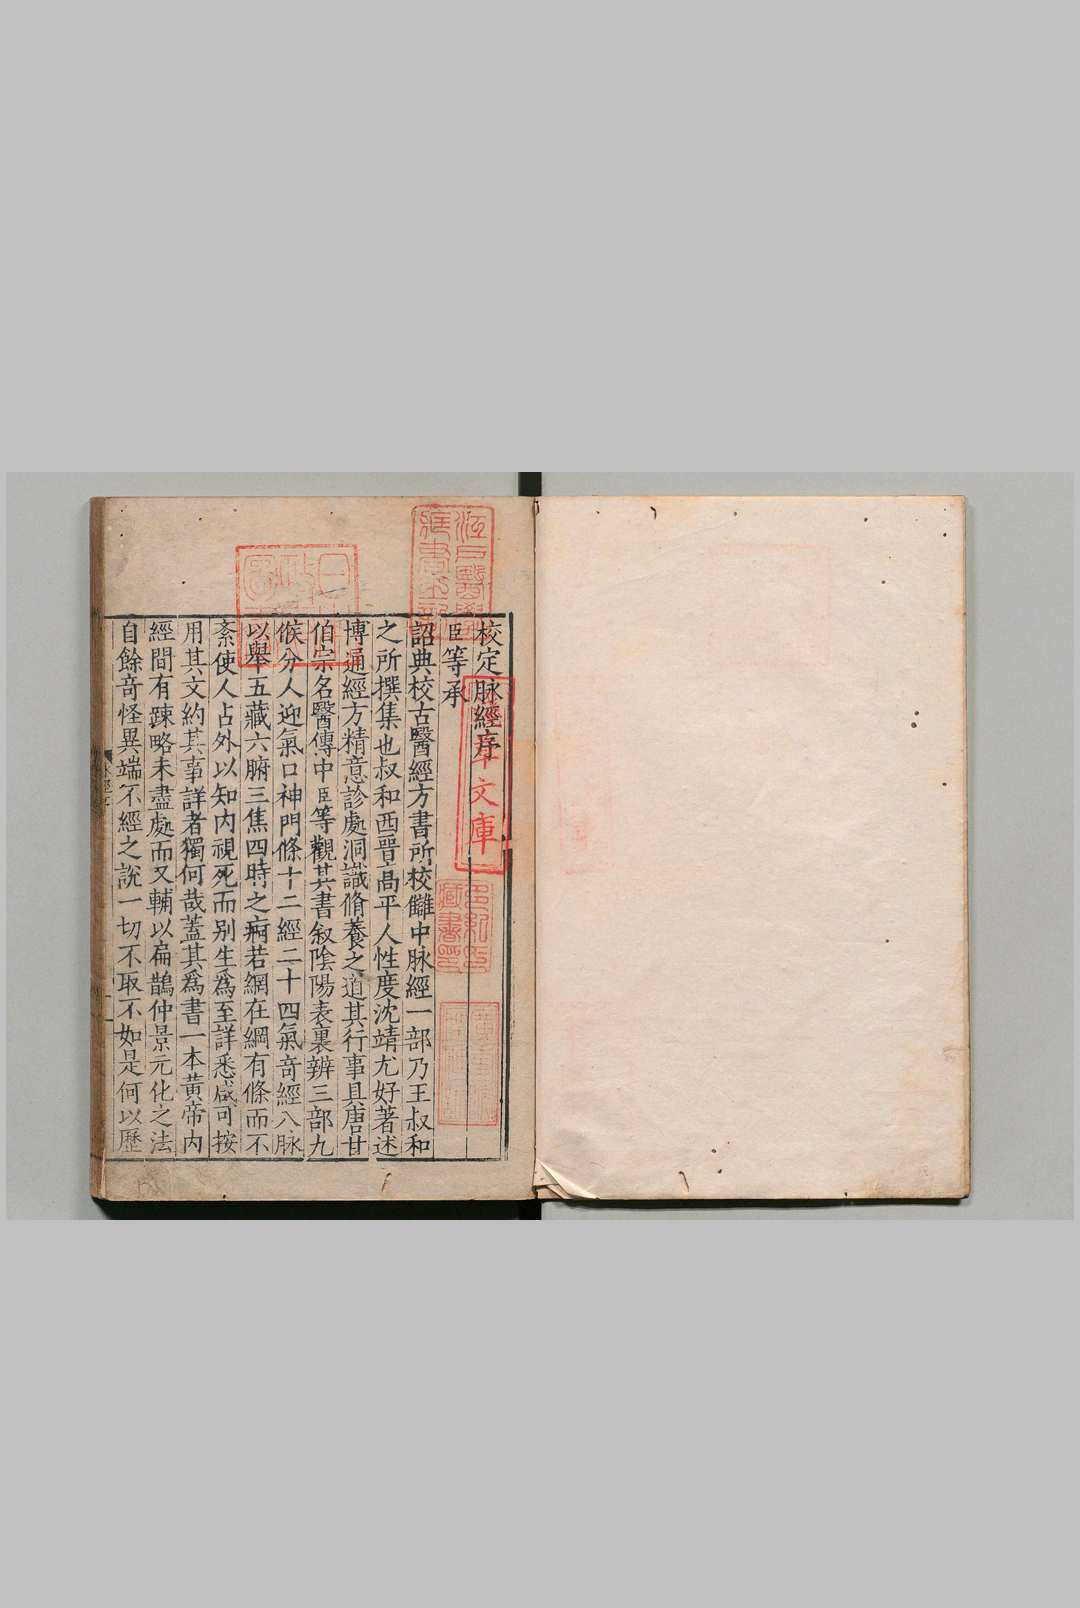 校定脉經序
臣等承
詔典校古醫經方書所校讎中脉經一部乃王叔和
之所撰集也叔和西晉高平人性度沈靖尤好著述
博通經方精意診處洞識脩養之道其行事具唐甘
伯宗名醫傳中臣等觀其書叙陰陽表裏辨三部九
候分人迎氣口神門條十二經二十四氣奇經八脉
以舉五藏六腑三焦四時之病若網在綱有條而不
紊使人占外以知内視死而别生爲至詳悉咸可按
用其文約其事詳者獨何哉蓋其爲書一本黄帝内
經間有踈略未盡處而又輔以扁鵲仲景元化之法
自餘竒怪異端不經之說一切不取不如是何以歷
江戸醫學
藏書之記
日本
政府
圖書
文庫
藏書印